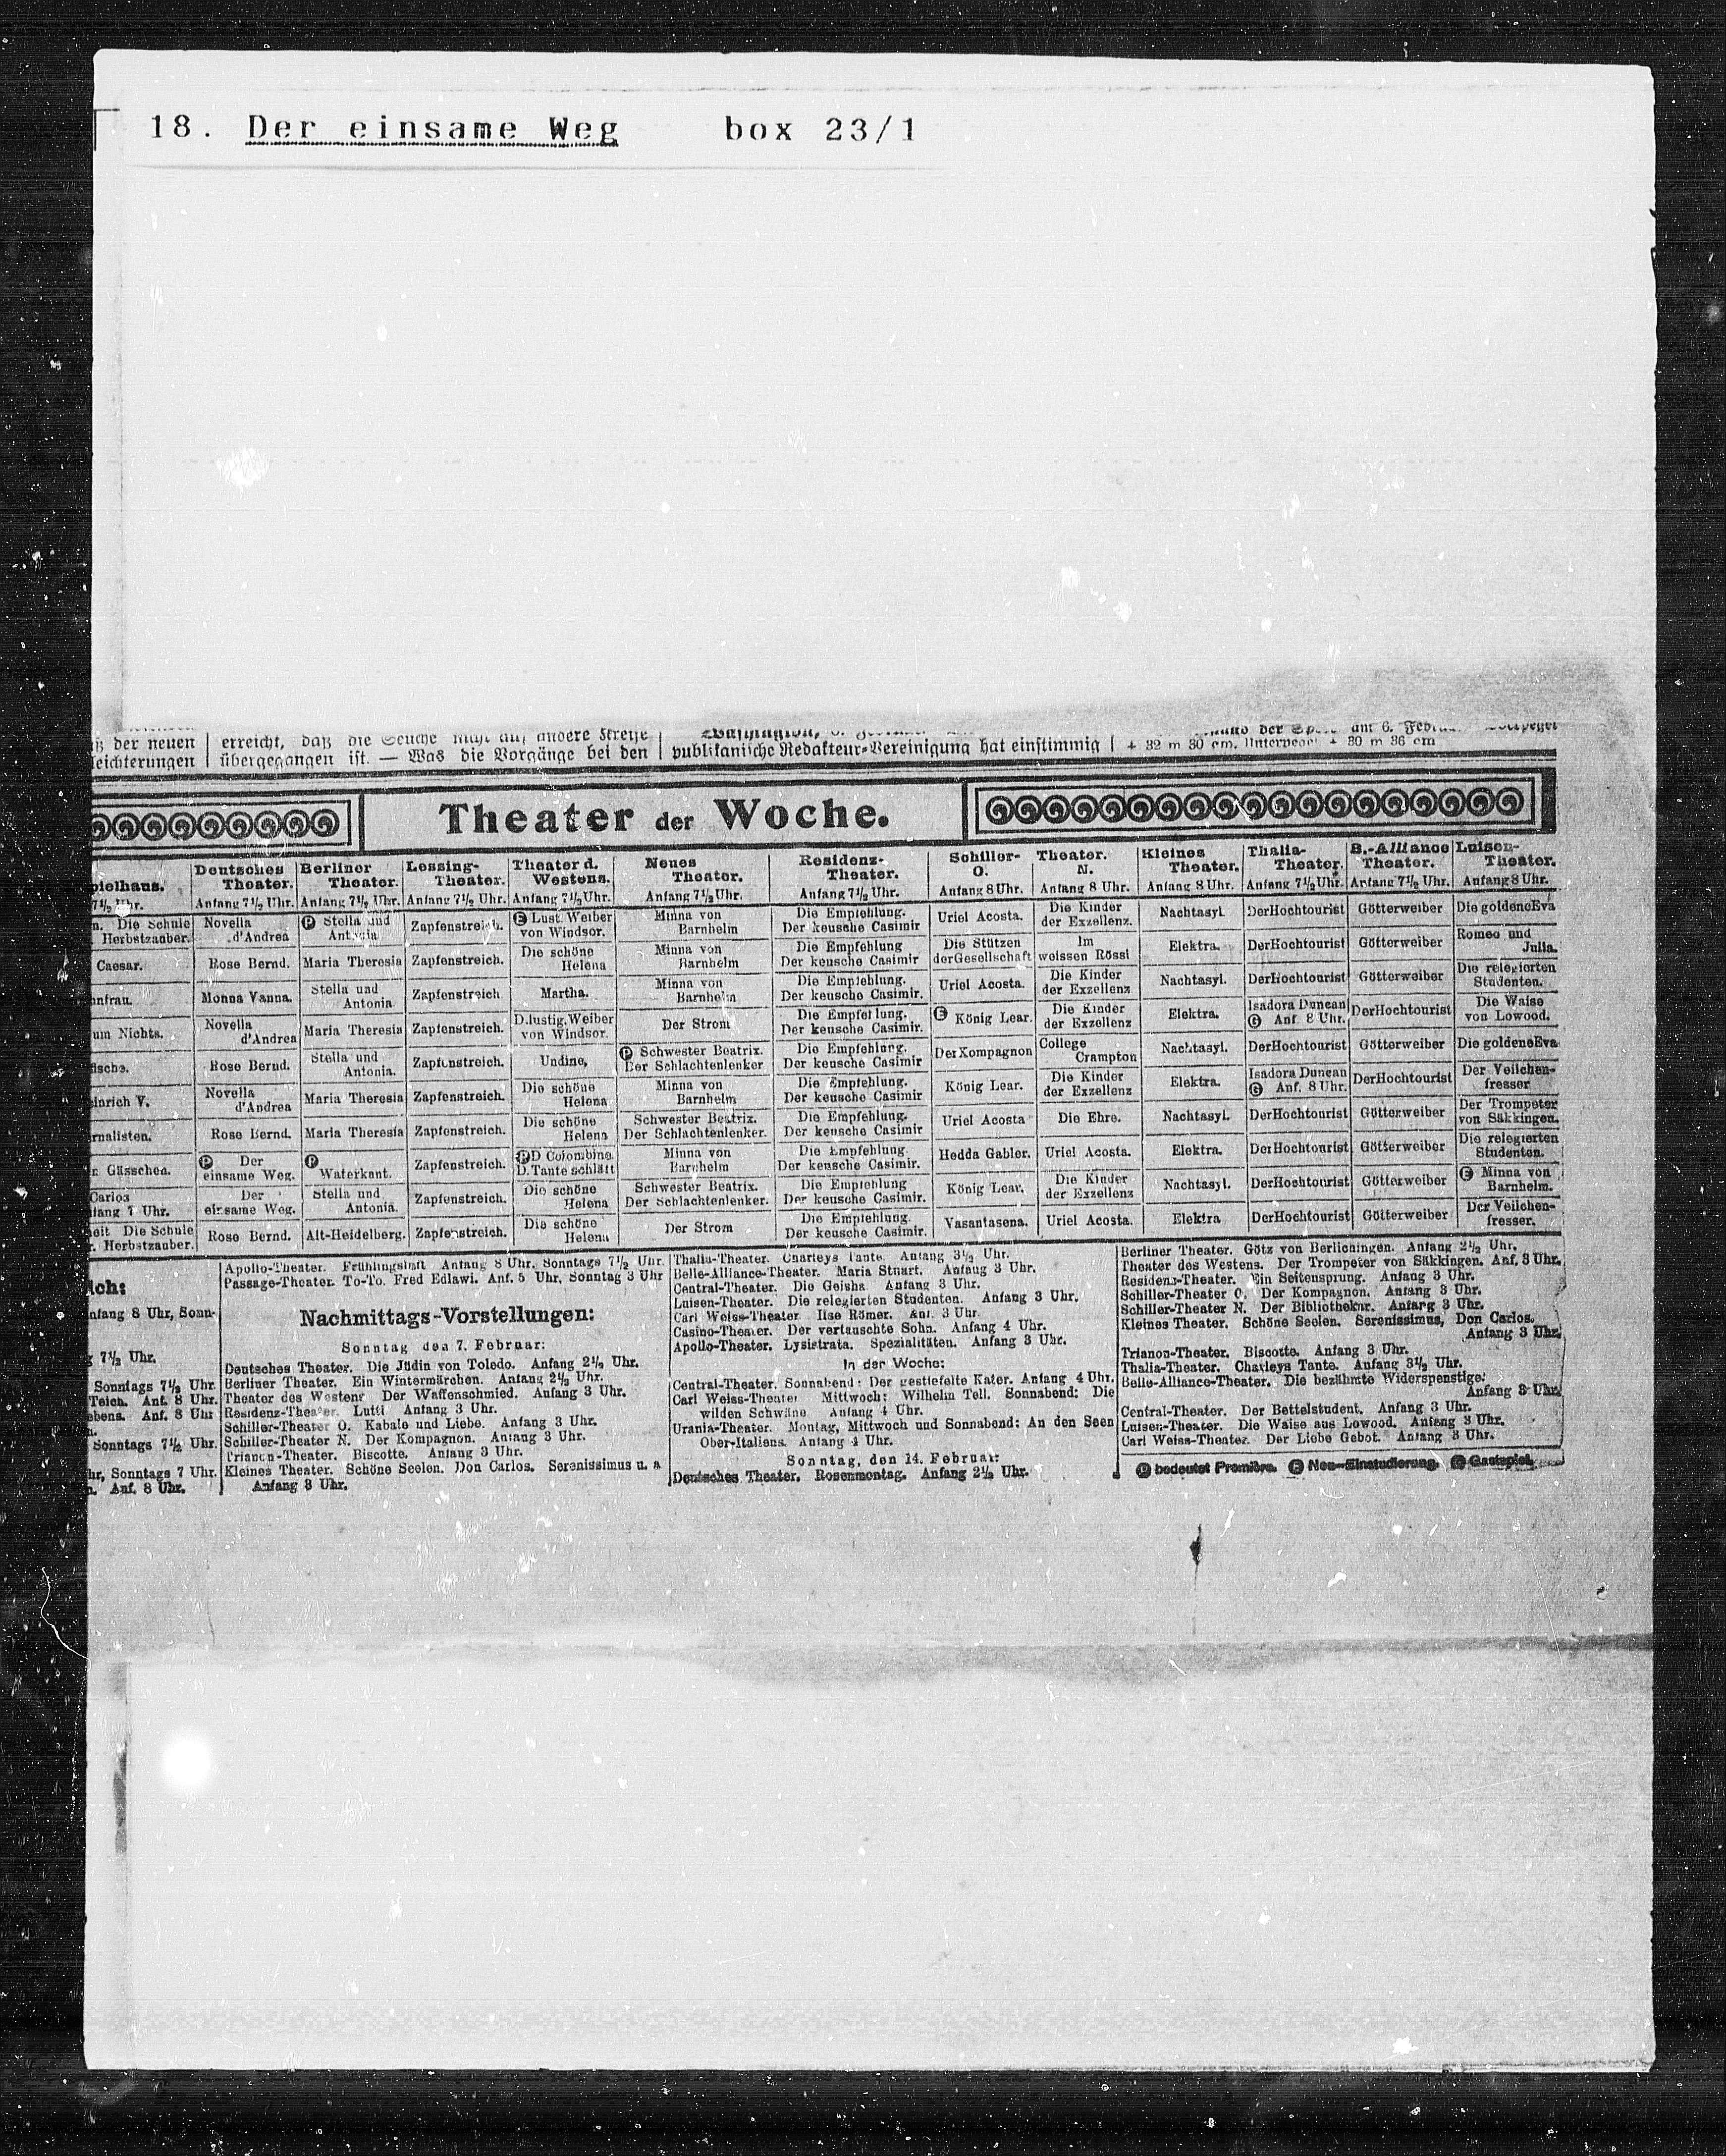 18. Der einsame Weg box 23/1
der neuen
leichterungen
erreicht, daß die Seuche nicht auf andere Kreise
übergegangen ist. — Was die Vorgänge bei den
publikanische Redakteur-Vereinigung hat einstimmig
am 6.
+ 32 m 30 cm, + 30 m 36 cm
Theater der Woche.
Deutsches Theater. Anfang 7½ Uhr.
Berliner Theater. Anfang 7½ Uhr.
Lessing-Theater. Anfang 7½ Uhr.
Theater d. Westens. Anfang 7½ Uhr.
Neues Theater. Anfang 7½ Uhr.
Residenz-Theater. Anfang 7½ Uhr.
Schiller-Theater.
O. Anfang 8 Uhr.
N. Anfang 8 Uhr.
Kleines Theater. Anfang 8 Uhr.
Thalia-Theater. Anfang 7½ Uhr.
B.-Alliance Theater. Anfang 7½ Uhr.
Luisen-Theater. Anfang 8 Uhr.
Die Schule Herbstzauber. Novella d'Andrea Ⓟ Stella und Antonia Zapfenstreich. Ⓔ Lust. Weiber von Windsor. Minna von Barnhelm Die Empfehlung. Der keusche Casimir Uriel Acosta. Die Kinder der Exzellenz. Nachtasyl. DerHochtourist Götterweiber Die goldeneEva
Caesar. Rose Bernd. Maria Theresia Zapfenstreich. Die schöne Helena Minna von Barnhelm Die Empfehlung Der keusche Casimir Die Stützen derGesellschaft Im weissen Rössl Elektra. DerHochtourist Götterweiber Romeo und Julia.
Monna Vanna. Stella und Antonia Zapfenstreich Martha. Minna von Barnhelm Die Empfehlung. Der keusche Casimir. Uriel Acosta. Die Kinder der Exzellenz Nachtasyl. DerHochtourist Götterweiber Die relegierten Studenten.
um Nichts. Novella d'Andrea Maria Theresia Zapfenstreich. D.lustig.Weiber von Windsor. Der Strom Die Empfehlung. Der keusche Casimir. Ⓔ König Lear. Die Kinder der Exzellenz Elektra. Isadora Duncan Ⓖ Anf. 8 Uhr. DerHochtourist Die Waise von Lowood.
Rose Bernd. Stella und Antonia. Zapfenstreich. Undine, Ⓟ Schwester Beatrix. Der Schlachtenlenker Die Empfehlung. Der keusche Casimir Der Kompagnon College Crampton Nachtasyl. DerHochtourist Götterweiber Die goldeneEva
Heinrich V. Novella d'Andrea Maria Theresia Zapfenstreich. Die schöne Helena Minna von Barnhelm Die Empfehlung. Der keusche Casimir König Lear. Die Kinder der Exzellenz Elektra. Isadora Duncan Ⓖ Anf. 8 Uhr. DerHochtourist Der Veilchenfresser
Rose Bernd. Maria Theresia Zapfenstreich. Die schöne Helena Schwester Beatrix. Der Schlachtenlenker. Die Empfehlung. Der keusche Casimir Uriel Acosta Die Ehre. Nachtasyl. DerHochtourist Götterweiber Der Trompeter von Säkkingen.
Gässchen. Ⓟ Der einsame Weg. Ⓟ Waterkant. Zapfenstreich. Ⓟ D Colombine. D. Tante schläft Minna von Barnhelm Die Empfehlung Der keusche Casimir. Hedda Gabler. Uriel Acosta. Elektra. DerHochtourist Götterweiber Die relegierten Studenten.
Carlos Anfang 7 Uhr. Der einsame Weg. Stella und Antonia. Zapfenstreich. Die schöne Helena Schwester Beatrix. Der Schlachtenlenker. Die Empfehlung Der keusche Casimir. König Lear. Die Kinder der Exzellenz Nachtasyl. DerHochtourist Götterweiber Ⓔ Minna von Barnhelm.
Die Schule Herbstzauber. Rose Bernd. Alt-Heidelberg. Zapfenstreich. Die schöne Helena Der Strom Die Empfehlung. Der keusche Casimir. Vasantasena. Uriel Acosta. Elektra DerHochtourist Götterweiber Der Veilchenfresser.
Anfang 8 Uhr, Sonn-
7½ Uhr.
Sonntags 7½ Uhr.
Teich. Anf. 8 Uhr.
Anf. 8 Uhr
Sonntags 7½ Uhr.
Sonntags 7 Uhr.
Anf. 8 Uhr.
Apollo-Theater. Frühlingsluft Anfang 8 Uhr. Sonntags 7½ Uhr.
Passage-Theater. To-To. Fred Edlawi. Anf. 5 Uhr, Sonntag 3 Uhr
Nachmittags-Vorstellungen:
Sonntag den 7. Februar:
Deutsches Theater. Die Jüdin von Toledo. Anfang 2½ Uhr.
Berliner Theater. Ein Wintermärchen. Anfang 2½ Uhr.
Theater des Westens Der Waffenschmied. Anfang 3 Uhr.
Residenz-Theater. Lutti Anfang 3 Uhr.
Schiller-Theater O. Kabale und Liebe. Anfang 3 Uhr.
Schiller-Theater N. Der Kompagnon. Anfang 3 Uhr.
Trianon-Theater. Biscotte. Anfang 3 Uhr.
Kleines Theater. Schöne Seelen. Don Carlos. Serenissimus u. a
Anfang 3 Uhr.
Thalia-Theater. Charleys Tante. Anfang 3½ Uhr.
Belle-Alliance-Theater. Maria Stuart. Anfang 3 Uhr.
Central-Theater. Die Geisha. Anfang 3 Uhr.
Luisen-Theater. Die relegierten Studenten. Anfang 3 Uhr.
Carl Weiss-Theater Ilse Römer. Anf. 3 Uhr.
Casino-Theater. Der vertauschte Sohn. Anfang 4 Uhr.
Apollo-Theater. Lysistrata. Spezialitäten. Anfang 3 Uhr.
In der Woche:
Central-Theater. Sonnabend: Der gestiefelte Kater. Anfang 4 Uhr.
Carl Weiss-Theater Mittwoch: Wilhelm Tell. Sonnabend: Die
wilden Schwäne Anfang 4 Uhr.
Urania-Theater. Montag, Mittwoch und Sonnabend: An den Seen
Ober-Italiens. Anfang 4 Uhr.
Sonntag, den 14. Februar:
Deutsches Theater. Rosenmontag. Anfang 2½ Uhr.
Berliner Theater. Götz von Berlichingen. Anfang 2½ Uhr.
Theater des Westens. Der Trompeter von Säkkingen. Anf. 3 Uhr.
Residenz-Theater. Ein Seitensprung. Anfang 3 Uhr.
Schiller-Theater O. Der Kompagnon. Anfang 3 Uhr.
Schiller-Theater N. Der Bibliothekar. Anfang 3 Uhr.
Kleines Theater. Schöne Seelen. Serenissimus, Don Carlos.
Anfang 3 Uhr.
Trianon-Theater. Biscotte. Anfang 3 Uhr.
Thalia-Theater. Charleys Tante. Anfang 3½ Uhr.
Belle-Alliance-Theater. Die bezähmte Widerspenstige.
Anfang 3 Uhr.
Central-Theater. Der Bettelstudent. Anfang 3 Uhr.
Luisen-Theater. Die Waise aus Lowood. Anfang 3 Uhr.
Carl Weiss-Theater. Der Liebe Gebot. Anfang 3 Uhr.
Ⓟ bedeutet Première. Ⓔ Neu-Einstudierung. Ⓖ Gastspiel.